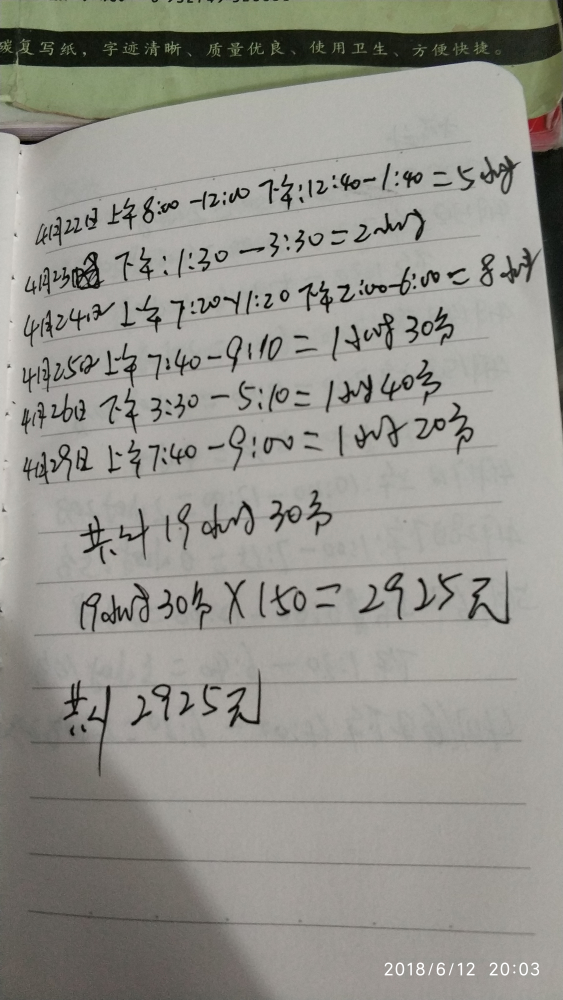 碳复写纸，字迹清晰、质量优良、使用卫生、方便快捷。
4月22日 上午8:00-12:00 下午:12:40-1:40=5小时
4月23日 下午:1:30-3:30=2小时
4月24日 上午7:20-11:20 下午2:00-6:00=8小时
4月25日上午7:40-9:10=1小时30分
4月26日 下午3:30-5:10=1小时40分
4月29日 上午7:40-9:00=1小时20分
共计19小时30分
19小时30分×150=2925元
共计2925元
2018/6/12 20:03